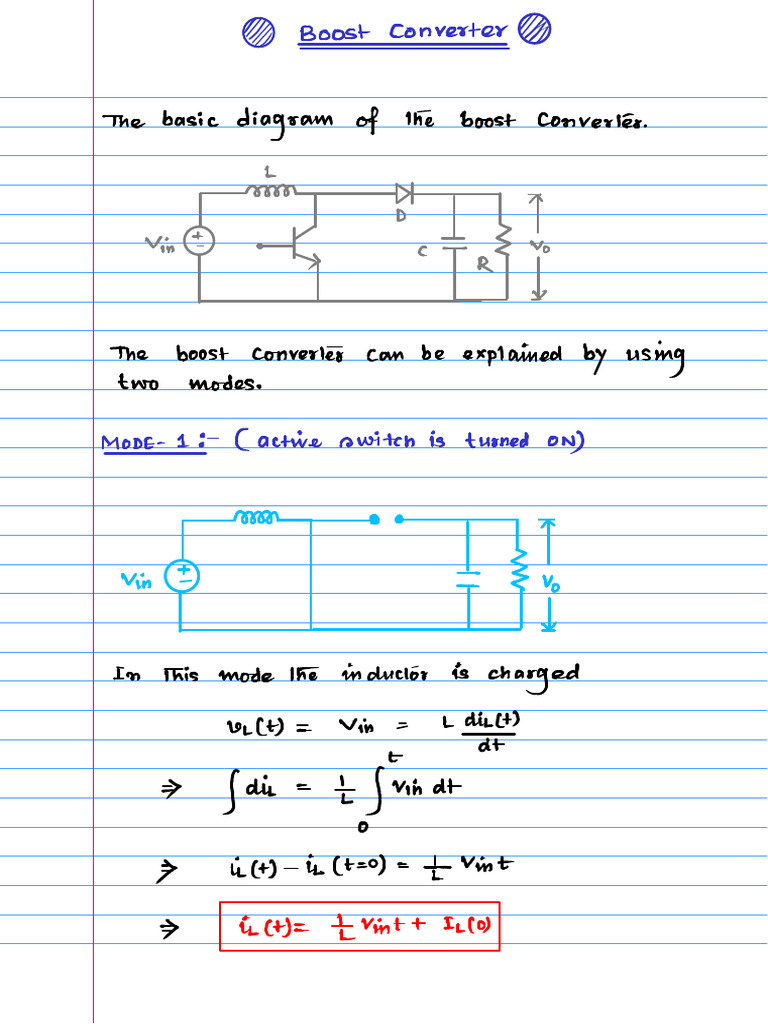 Boost Converter
The basic diagram of the boost Converter.
L
D
Vin
+
-
C
R
Vo
The boost Converter can be explained by using
two modes.
MODE-1:- (active switch is turned ON)
Vin
+
-
Vo
In This mode the inductor is charged
vL(t) = Vin = L diL(t)/dt
⇒ ∫diL = 1/L ∫₀ᵗ Vin dt
⇒ iL(t) - iL(t=0) = 1/L Vin t
⇒ iL(t) = 1/L Vin t + IL(0)